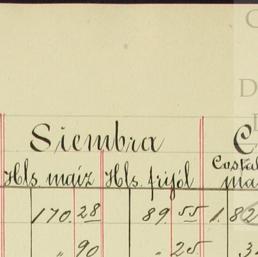 Siembra C
Costal
Hls. maíz Hls. frijól ma
170.28 89.55 1.82
" 90 " 25 3